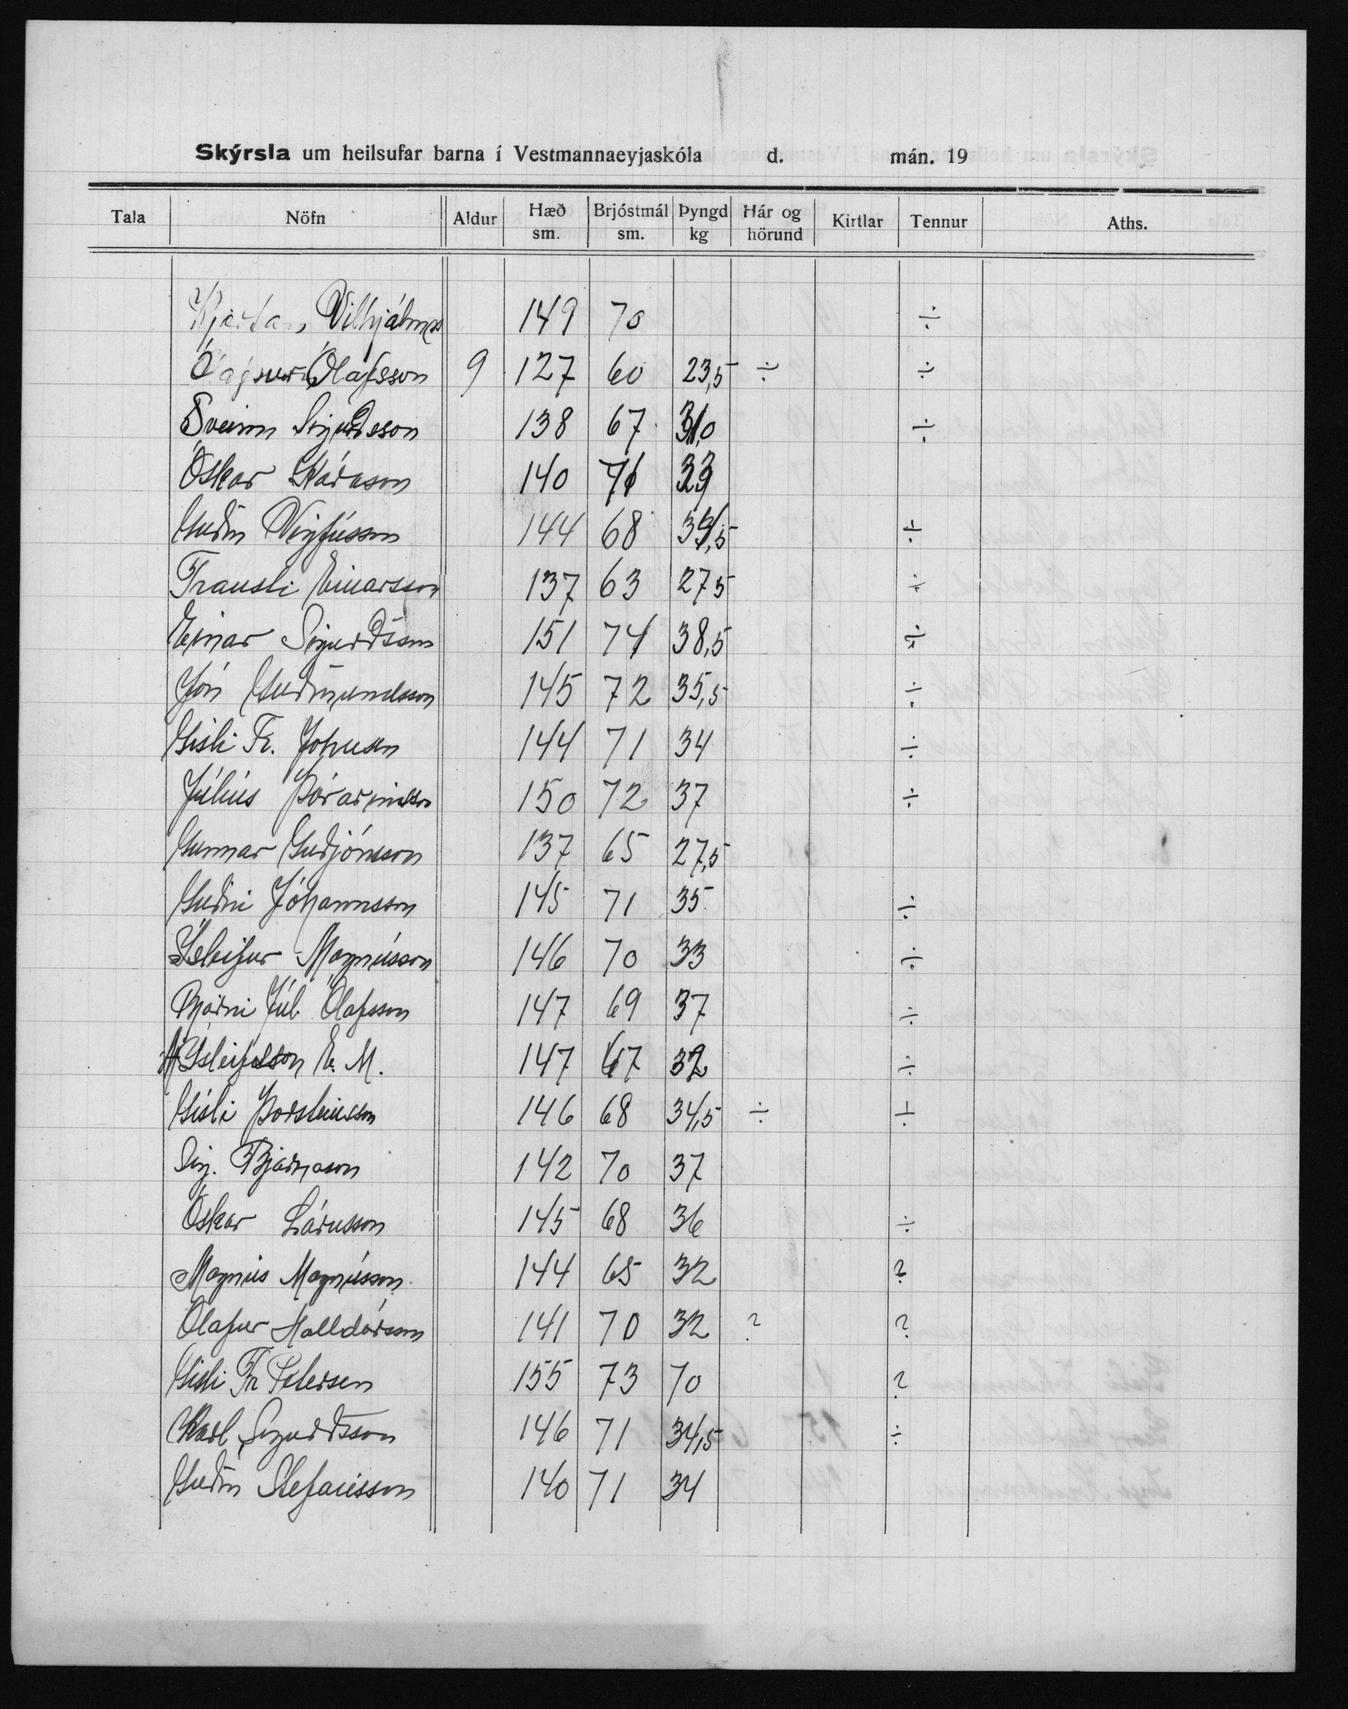 Skýrsla um heilsufar barna í Vestmannaeyjaskóla d. mán. 19
Tala Nöfn Aldur Hæð sm. Brjóstmál sm. Þyngd kg Hár og hörund Kirtlar Tennur Aths.
Vilhjálmss 149 70 ÷
Ólafsson 9 127 60 23,5 ÷ ÷
Sveinn Sigurðsson 138 67 31,0 ÷
Óskar Kárason 140 71 33
Guðm Vigfússon 144 68 ÷
Trausti Einarsson 137 63 275 ÷
Einar Sigurðsson 151 74 38,5 ÷
Jón Guðmundsson 145 72 35,5 ÷
Gísli Fr. Johnsen 144 71 34 ÷
Júlíus Þórarinsson 150 72 37 ÷
Gunnar Guðjónsson 137 65 27,5
Guðni Jóhannsson 145 71 35 ÷
Ísleifur Magnússon 146 70 33 ÷
Bjarni Júl. Ólafsson 147 69 37 ÷
Ísleifsson E. M. 147 67 32 ÷
Gísli Þorsteinsson 146 68 34,5 ÷ ÷
Sig. Bjarnason 142 70 37
Óskar Lárusson 145 68 36 ÷
Magnús Magnússon 144 65 32 ?
Ólafur Halldórsson 141 70 32 ? ?
Gísli Fr Petersen 155 73 70 ?
Karl Sigurðsson 146 71 34,5 ÷
Guðm Stefánsson 140 71 34